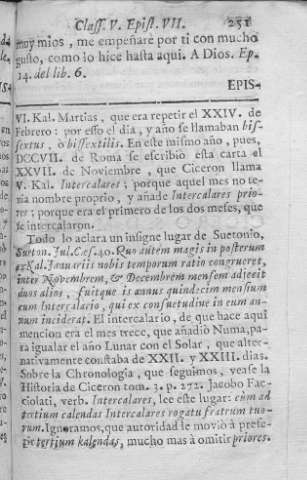 Class. V. Epist. VII. 251
muy mios, me empeñaré por ti con mucho
gusto, como lo hice hasta aqui. A Dios. Ep.
14. del lib. 6.
EPIS-
VI. Kal. Martias, que era repetir el XXIV. de
Febrero: por esso el dia, y año se llamaban bis-
sextus, o bissextilis. En este mismo año, pues,
DCCVII. de Roma se escribiò esta carta el
XXVII. de Noviembre, que Ciceron llama
V. Kal. Intercalares; porque aquel mes no te-
nia nombre proprio, y añade Intercalares prio-
res; porque era el primero de los dos meses, que
se intercalaron.
Todo lo aclara un insigne lugar de Suetonio,
Sueton. Jul. Ces. 40. Quo autem magis in posterum
ex Kal. Januariis nobis temporum ratio congrueret,
inter Novembrem, & Decembrem mensem adjecit
duos alios, fuitque is annus quindecim mensium
cum Intercalario, qui ex consuetudine in eum an-
num inciderat. El intercalario, de que hace aqui
mencion era el mes trece, que añadiò Numa, pa-
ra igualar el año Lunar con el Solar, que alter-
nativamente constaba de XXII. y XXIII. dias.
Sobre la Chronologia, que seguimos, vease la
Historia de Ciceron tom. 3. p. 272. Jacobo Fac-
ciolati, verb. Intercalares, lee este lugar: cùm ad
tertium calendas Intercalares rogatu fratrum tuo-
rum. Ignoramos, que autoridad le moviò à prefe-
rir tertium kalendas, mucho mas à omitir priores.